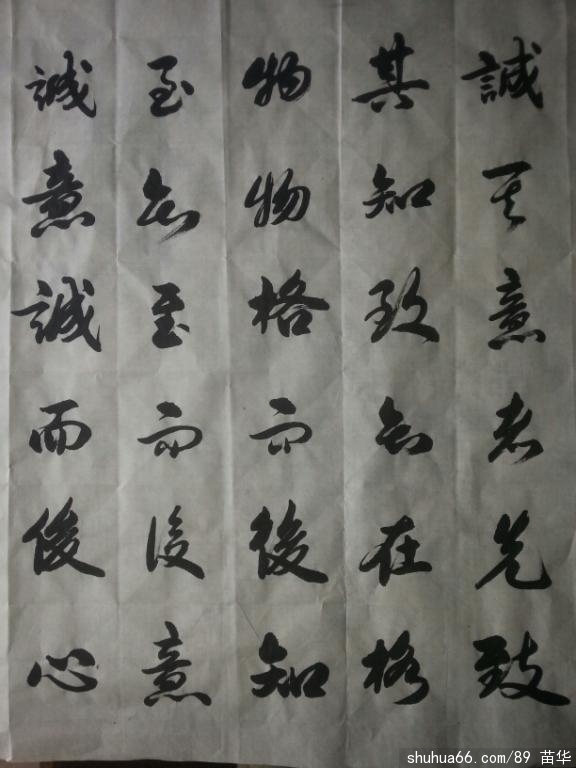 誠其意者先致
其知致知在格
物物格而後知
至知至而後意
誠意誠而後心
shuhua66.com/89 苗华